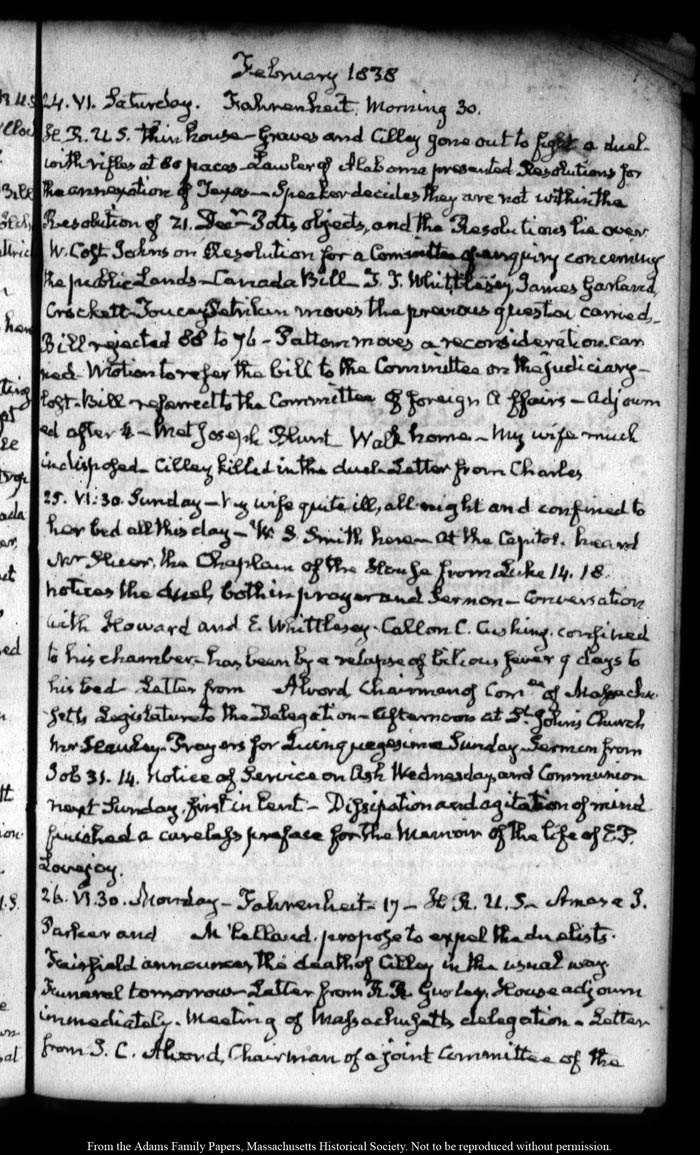 February 1838
24. VI. Saturday. Fahrenheit, Morning 30.
H. R. U S. thin house – Graves and Cilley gone out to fight a duel
with rifles at 80 paces – Lawler of Alabama presented Resolutions for
the annexation of Texas – Speaker decides they are not within the
Resolution of 21. Decr. – Potts objects, and the Resolutions lie over
W. Cost Johns on Resolution for a Committee of enquiry concerning
the public Lands – Canada Bill – Whittlesey, James Garland
Crockett – Toucey Petrikin moves the previous question carried,
Bill rejected 88 to 76 – Patton moves a reconsideration. car
ried – Motion to refer the bill to the Committee on the Judiciary –
lost – Bill referred to the Committee of foreign Affairs – adjourn
ed after 4 – Met Joseph Blunt Walk home – My wife much
indisposed – Cilley killed in the duel – Letter from Charles
25. VI: 30. Sunday – My wife quite ill, all night and confined to
her bed all this day – W. S. Smith here – At the Capitol. heard
Mr Slicer, the Chaplain of the House from Luke 14. 18.
notices the duel, both in prayer and Sermon – Conversation
with Howard and E. Whittlesey – Call on C. Cushing. confined
to his chamber – has been by a relapse of bilious fever 9 days to
his bed – Letter from Alvord Chairman of Comee of Massachu
setts Legislature to the Delegation – Afternoon at St. John's Church
Mr Hawley. Prayers for Quinquagesima Sunday – Sermon from
Job 31. 14. Notice of Service on Ash Wednesday and Communion
next Sunday, first in Lent – Dissipation and agitation of mind
finished a careless preface for the Memoir of the life of E. P.
Lovejoy.
26. VI. 30. Monday – Fahrenheit – 17 – H. R. U. S – Amasa J.
Parker and M'Clelland. propose to expel the duelists.
Fairfield announces the death of Cilley in the usual way
Funeral tomorrow – Letter from R. R. Gurley. House adjourn
immediately. Meeting of Massachusetts delegation – Letter
from J. C. Alvord, Chairman of a joint Committee of the
From the Adams Family Papers, Massachusetts Historical Society. Not to be reproduced without permission.